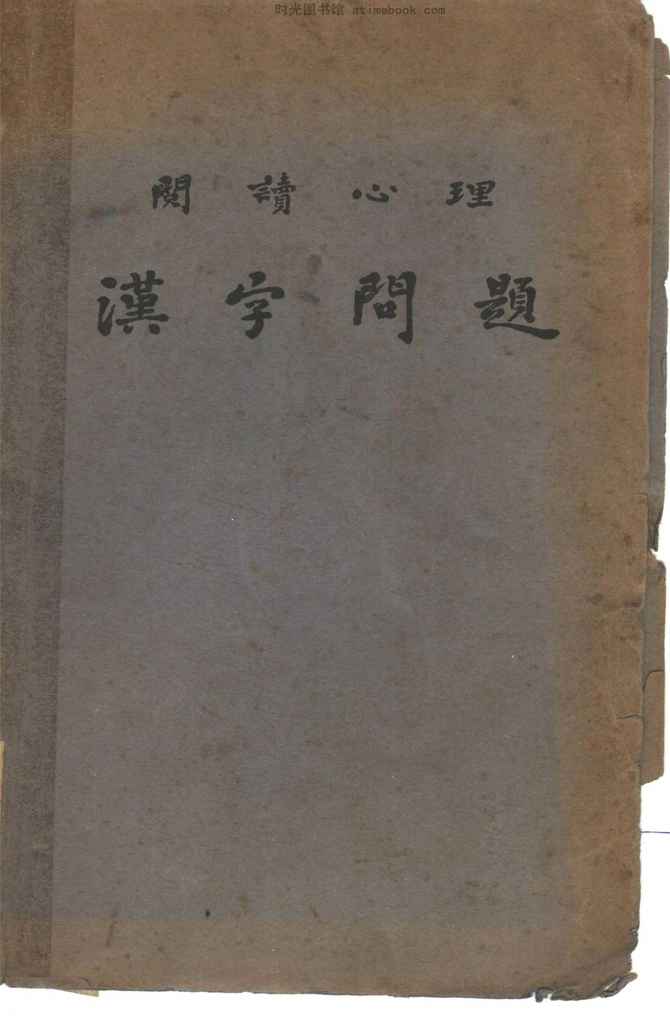 时光图书馆 atimebook.com
閱讀心理
漢字問題